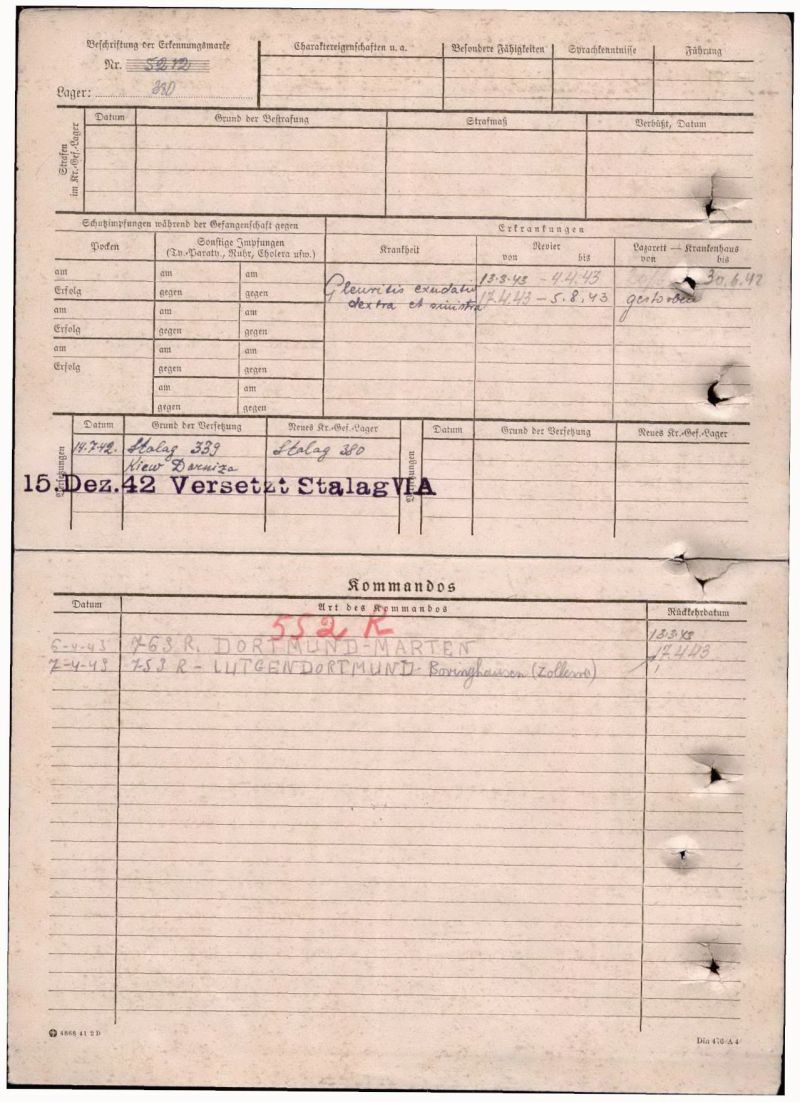 Beschriftung der Erkennungsmarke
Nr. 5212
Lager: 380
Charaktereigenschaften u. a.
Besondere Fähigkeiten
Sprachkenntnisse
Führung
Strafen im Kr.-Gef.-Lager
Datum
Grund der Bestrafung
Strafmaß
Verbüßt, Datum
Schutzimpfungen während der Gefangenschaft gegen
Erkrankungen
Pocken
Sonstige Impfungen
(Ty.-Paraty., Ruhr, Cholera usw.)
Krankheit
Revier
von bis
Lazarett — Krankenhaus
von bis
am am am
Erfolg gegen gegen
am am am
Erfolg gegen gegen
am am am
Erfolg gegen gegen
am am
gegen gegen
13.3.43 - 4.4.43
30.6.42
Pleuritis exudativ
17.4.43 - 5.8.43
gestorben
dextra et sinistra
Versetzungen
Datum
Grund der Versetzung
Neues Kr.-Gef.-Lager
Versetzungen
Datum
Grund der Versetzung
Neues Kr.-Gef.-Lager
14.7.42. Stalag 339 Stalag 380
Kiew Darniza
15. Dez. 42 Versetzt Stalag VI A
Kommandos
Datum
Art des Kommandos
Rückkehrdatum
552 R
13.3.43
6-4-43 763 R. DORTMUND-MARTEN 17.4.43
7-4-43 753 R - LUTGENDORTMUND - Bovinghausen
4868 41 2 D
Din 476 A 4